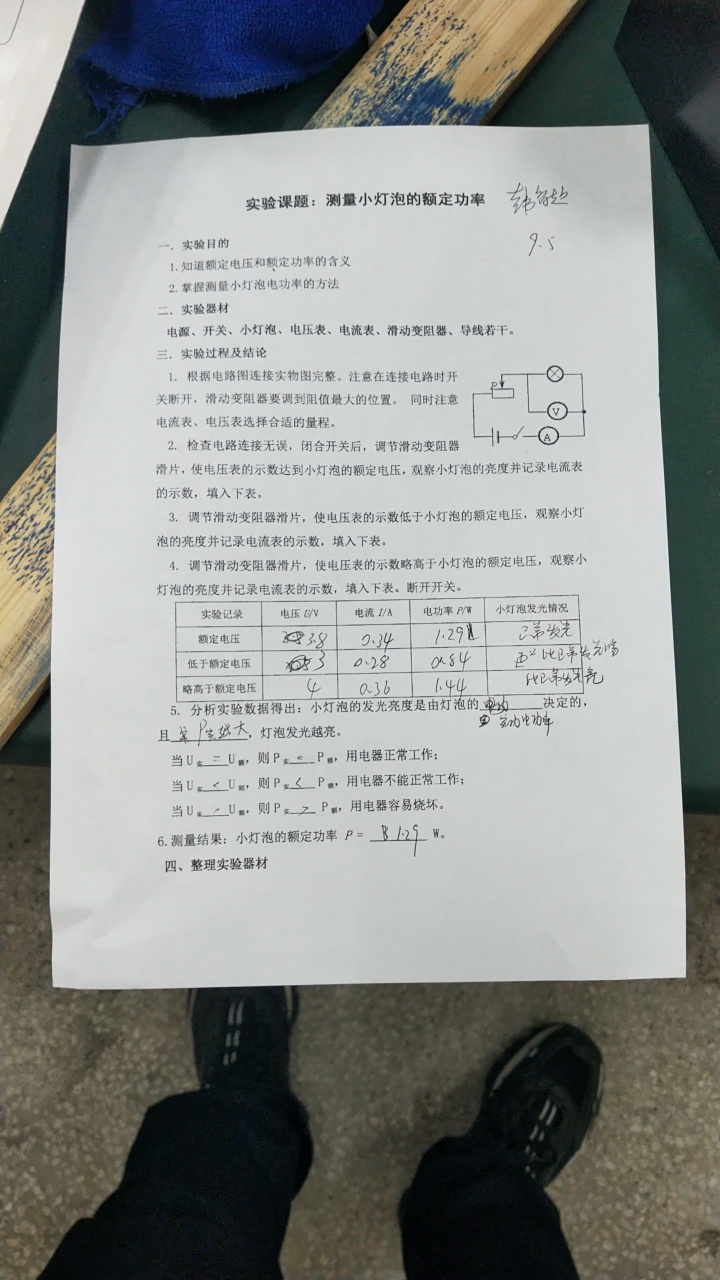 实验课题：测量小灯泡的额定功率
9.5
一．实验目的
1.知道额定电压和额定功率的含义
2.掌握测量小灯泡电功率的方法
二．实验器材
电源、开关、小灯泡、电压表、电流表、滑动变阻器、导线若干。
三．实验过程及结论
1. 根据电路图连接实物图完整。注意在连接电路时开
关断开，滑动变阻器要调到阻值最大的位置。 同时注意
电流表、电压表选择合适的量程。
P
V
A
2. 检查电路连接无误，闭合开关后，调节滑动变阻器
滑片，使电压表的示数达到小灯泡的额定电压，观察小灯泡的亮度并记录电流表
的示数，填入下表。
3. 调节滑动变阻器滑片，使电压表的示数低于小灯泡的额定电压，观察小灯
泡的亮度并记录电流表的示数，填入下表。
4. 调节滑动变阻器滑片，使电压表的示数略高于小灯泡的额定电压，观察小
灯泡的亮度并记录电流表的示数，填入下表。断开开关。
实验记录 电压 U/V 电流 I/A 电功率 P/W 小灯泡发光情况
额定电压 3.8 0.34 1.292 正常发光
低于额定电压 3 0.28 0.84 比正常发光暗
略高于额定电压 4 0.36 1.44 比正常发光亮
5. 分析实验数据得出：小灯泡的发光亮度是由灯泡的 决定的，
实际电功率
且 P实越大，灯泡发光越亮。
当 U实 = U额，则 P实 = P额，用电器正常工作；
当 U实 < U额，则 P实 < P额，用电器不能正常工作；
当 U实 > U额，则 P实 > P额，用电器容易烧坏。
6.测量结果：小灯泡的额定功率 P = 1.29 W。
四、整理实验器材